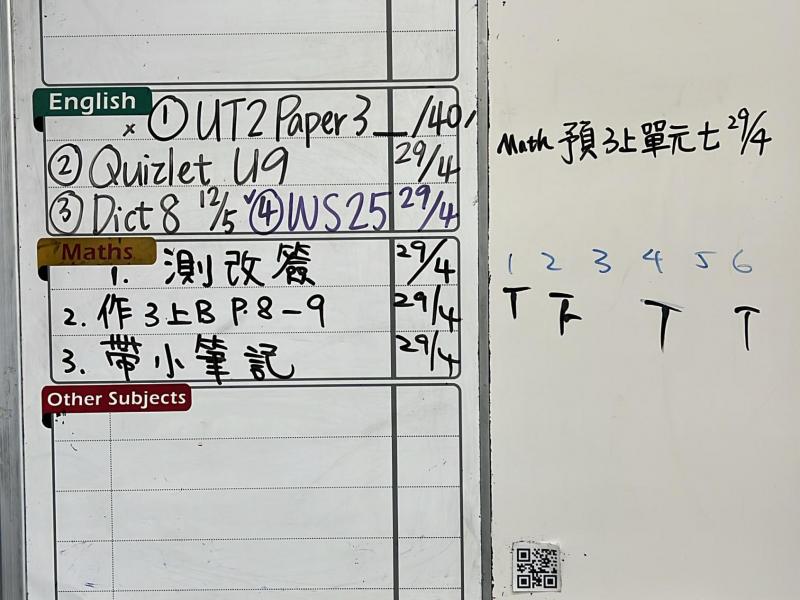 English
× ① UT2 Paper 3 __/40,
② Quizlet U9 29/4
③ Dict 8 12/5 ④ WS25 29/4
Maths
1. 測改簽 29/4
2. 作3上B P.8-9 29/4
3. 帶小筆記 29/4
Other Subjects
Math 預3上單元七 29/4
1 2 3 4 5 6
T T T T